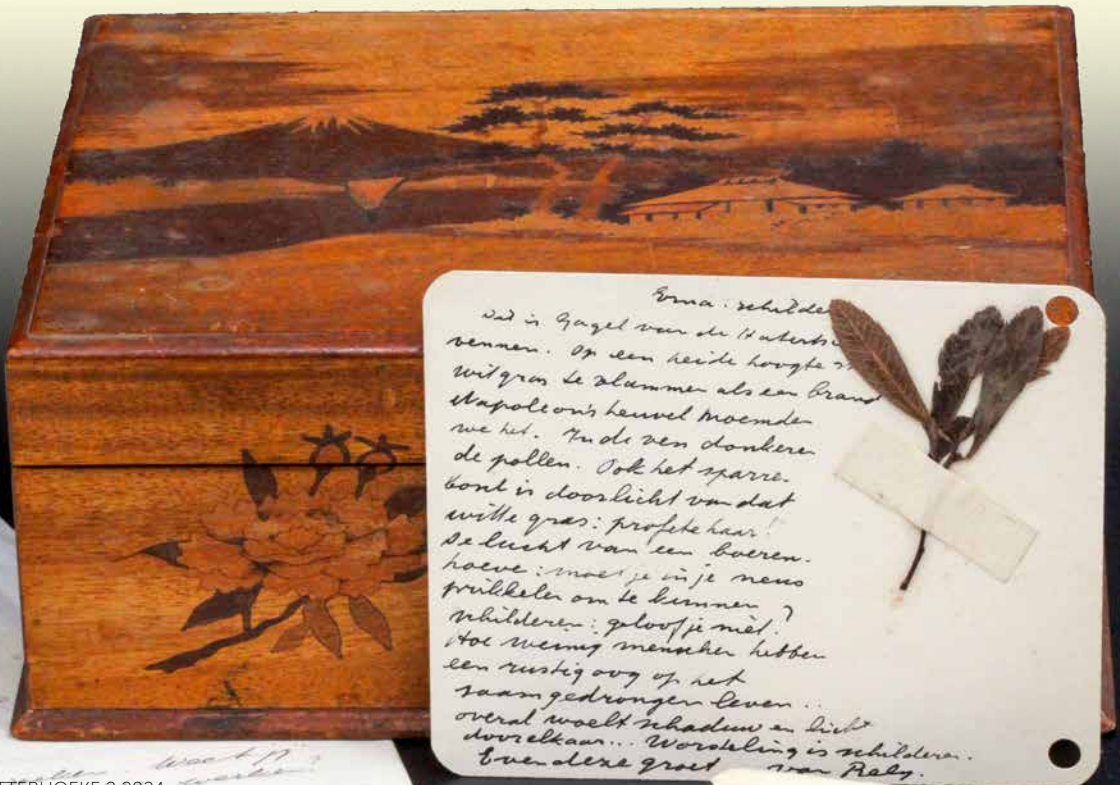 Erna: schilde
Dit is Gagel van de Hatertse
vennen. Op een heide hoogte s
wit gras te vlammen als een brand
Napoleon's heuvel noemden
we het. In de ven donkeren
de pollen. Ook het sparre.
bont is doorlicht van dat
witte gras: profete haar!
De lucht van een boeren.
hoeve: moet je in je neus
prikkelen om te kunnen
schilderen: geloof je niet?
Hoe weinig menschen hebben
een rustig oog op het
saamgedrongen leven..
overal woelt schaduw en licht
doorelkaar... Worsteling is schilderen.
Even deze groet van Rely.